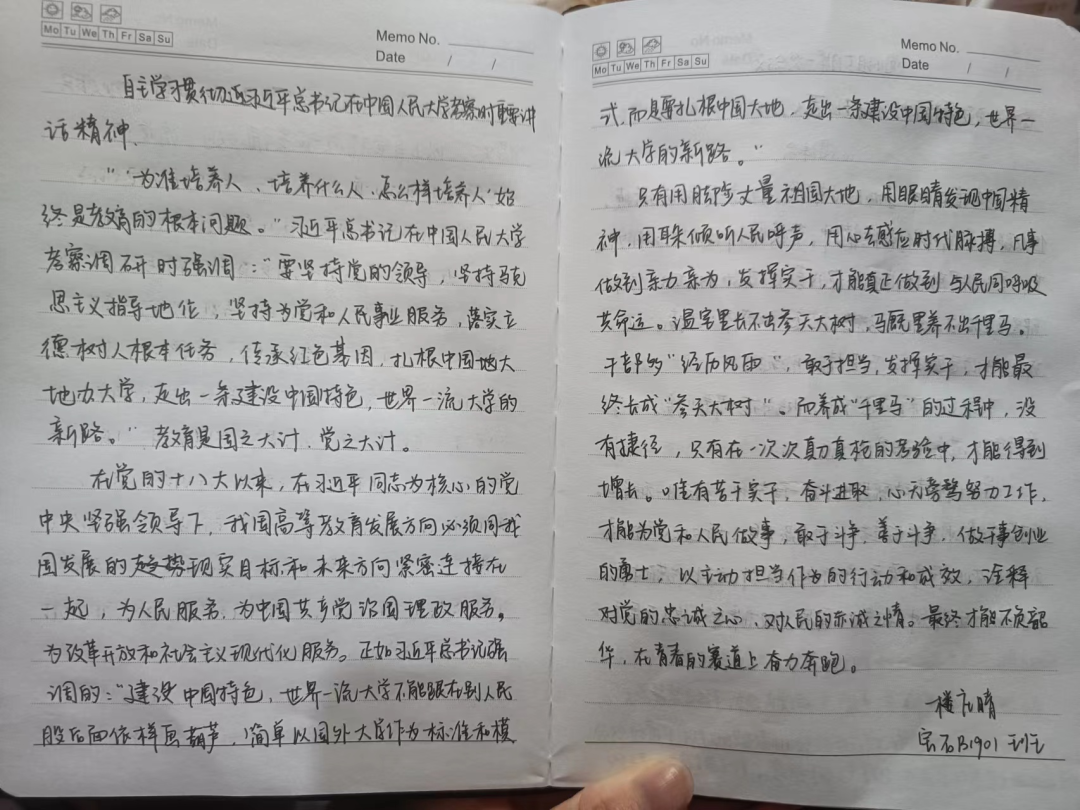 Mo Tu We Th Fr Sa Su
Memo No.
Date / /
自主学习贯彻习近平总书记在中国人民大学考察时重要讲
话精神.
“‘为谁培养人、培养什么人、怎么样培养人’始
终是教育的根本问题。”习近平总书记在中国人民大学
考察调研时强调：“要坚持党的领导，坚持马克
思主义指导地位；坚持为党和人民事业服务，落实立
德树人根本任务，传承红色基因，扎根中国地大
地办大学，走出一条建设中国特色，世界一流大学的
新路。”教育是国之大计，党之大计。
在党的十八大以来，在习近平同志为核心的党
中央坚强领导下，我国高等教育发展方向必须同我
国发展的趋势现实目标和未来方向紧密连接在
一起，为人民服务，为中国共产党治国理政服务。
为改革开放和社会主义现代化服务。正如习近平总书记强
调的：“建设中国特色，世界一流大学不能跟在别人民
股后面依样画葫芦，简单以国外大学作为标准和模
Mo Tu We Th Fr Sa Su
Memo No.
Date / /
式，而是要扎根中国大地，走出一条建设中国特色，世界一
流大学的新路。”
只有用脚步丈量祖国大地，用眼睛发现中国精
神，用耳朵倾听人民呼声，用心去感应时代脉搏，凡事
做到亲力亲为，发挥实干，才能真正做到与人民同呼吸
共命运。温室里长不出参天大树，马厩里养不出千里马。
干部多“经历风雨”，敢于担当，发挥实干，才能最
终长成“参天大树”。而养成“千里马”的过程中，没
有捷径，只有在一次次真刀真枪的考验中，才能得到
增长。唯有苦干实干，奋斗进取，心无旁骛努力工作，
才能为党和人民做事，敢于斗争，善于斗争，做干事创业
的勇士，以主动担当作为的行动和成效，诠释
对党的忠诚之心、对人民的赤诚之情。最终才能不负韶
华，在青春的赛道上奋力奔跑。
宝石B1901班